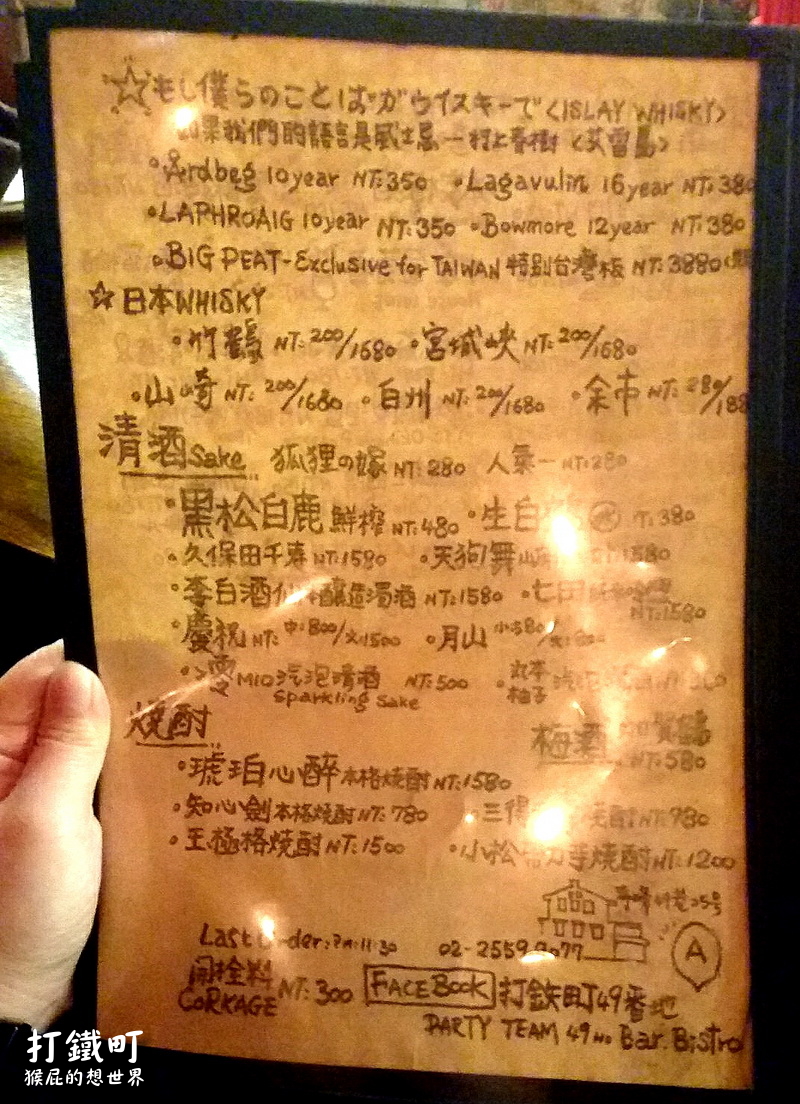 ☆もし僕らのことばがウイスキーで<ISLAY WHISKY>
如果我們的語言是威士忌一村上春樹<艾雷島>
•Ardbeg 10year NT:350 •Lagavulin 16year NT:380
•LAPHROAIG 10year NT:350 •Bowmore 12year NT:380
•BIG PEAT-Exclusive for TAIWAN 特別台灣板 NT:3880
☆日本WHISKY
•竹鶴 NT:200/1680 •宮城峽 NT:200/1680
•山崎 NT:200/1680 •白州 NT:200/1680 •余市 NT:280/188
清酒Sake 狐狸の嫁 NT:280 人氣一 NT:280
•黑松白鹿 鮮榨 NT:480 •生白 380
•久保田千寿 NT:1580 •天狗舞 1580
•李白酒 釀造濁酒 NT:1580 •七田 NT:1580
•慶祝 NT: 中:800/大:1500 •月山
•澪MIO汽泡清酒 NT:500 •丸本柚子
Sparkling Sake
焼酎
梅酒 賀鶴
NT:580
•琥珀心醉本格焼酎NT:1580
•知心劍本格焼酎NT:780 •三 焼酎NT:980
•王極格焼酎NT:1500 •小松 芋焼酎NT:1200
25号
Last Order:PM:11:30 02-2559 077
A
開栓料
CORKAGE NT:300 FACEBOOK 打鉄町49番地
PARTY TEAM 49 no Bar.Bistro
打鐵町
猴屁的想世界